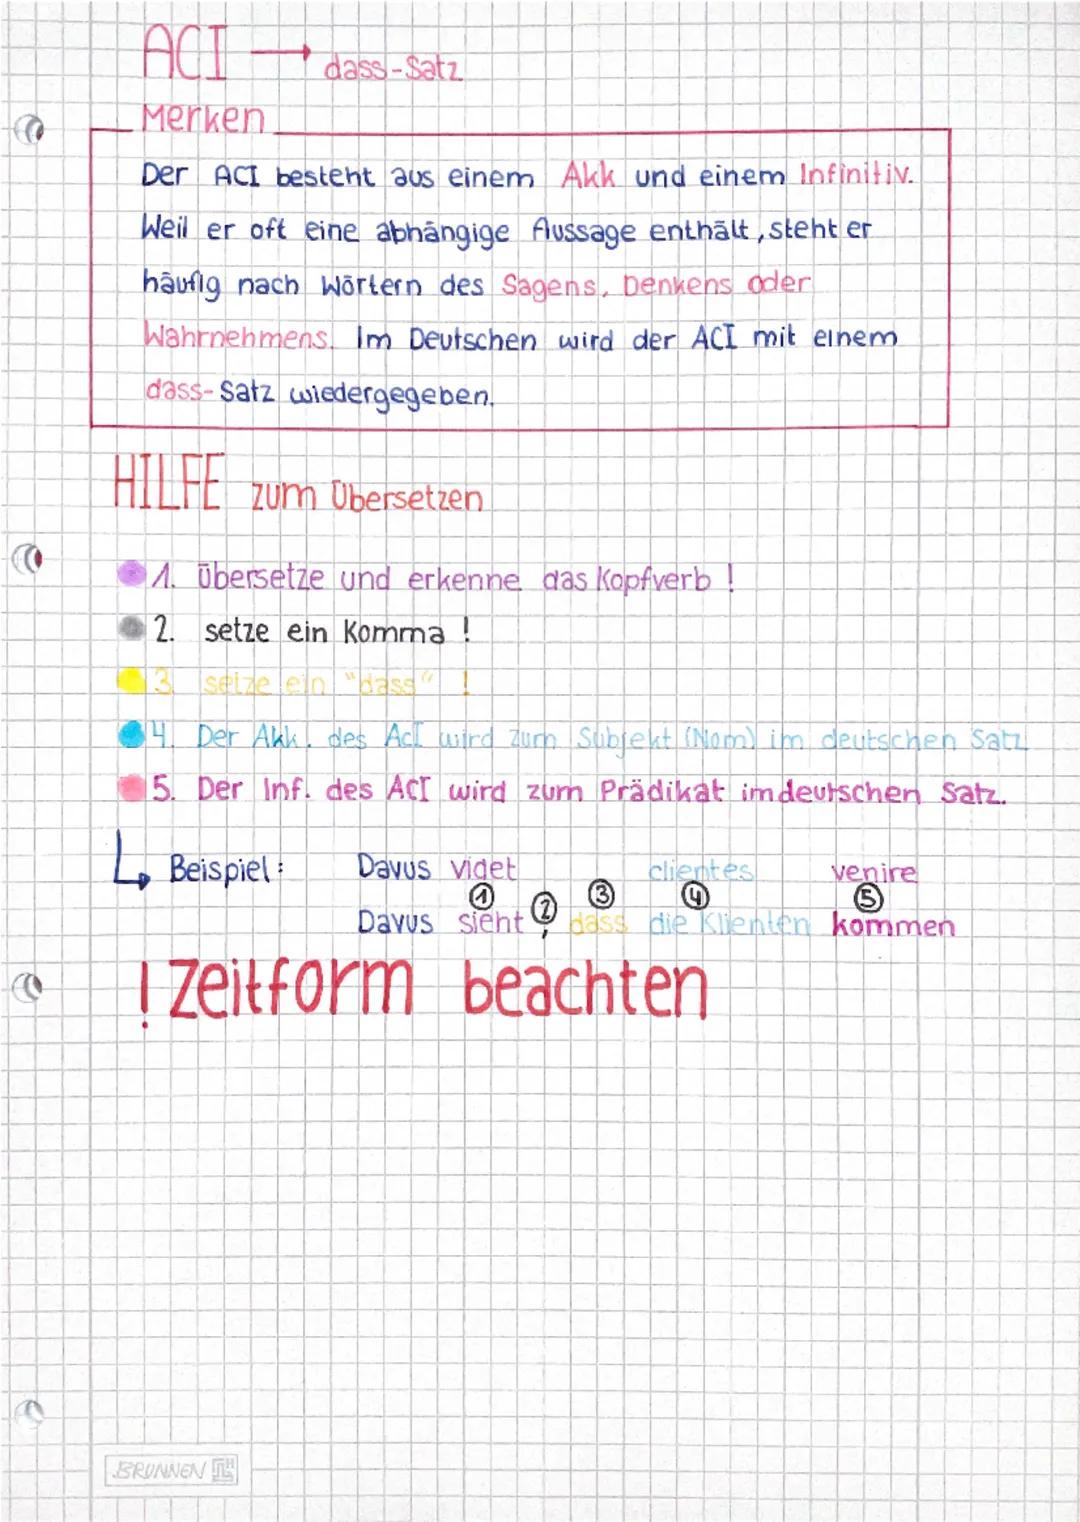 ACI → dass-Satz
Merken
Der ACI besteht aus einem Akk und einem Infinitiv.
Weil er oft eine abhängige Aussage enthält, steht er
häufig nach Wörtern des Sagens, Denkens oder
Wahrnehmens. Im Deutschen wird der ACI mit einem
dass-Satz wiedergegeben.
HILFE zum Übersetzen
1. Übersetze und erkenne das Kopfverb!
2. setze ein Komma!
3. setze ein "dass" !
4. Der Akk. des AcI wird zum Subjekt (Nom) im deutschen Satz
5. Der Inf. des ACI wird zum Prädikat im deutschen Satz.
↳ Beispiel: Davus videt clientes venire
① ② ③ ④ ⑤
Davus sieht , dass die Klienten kommen
! Zeitform beachten
BRUNNEN